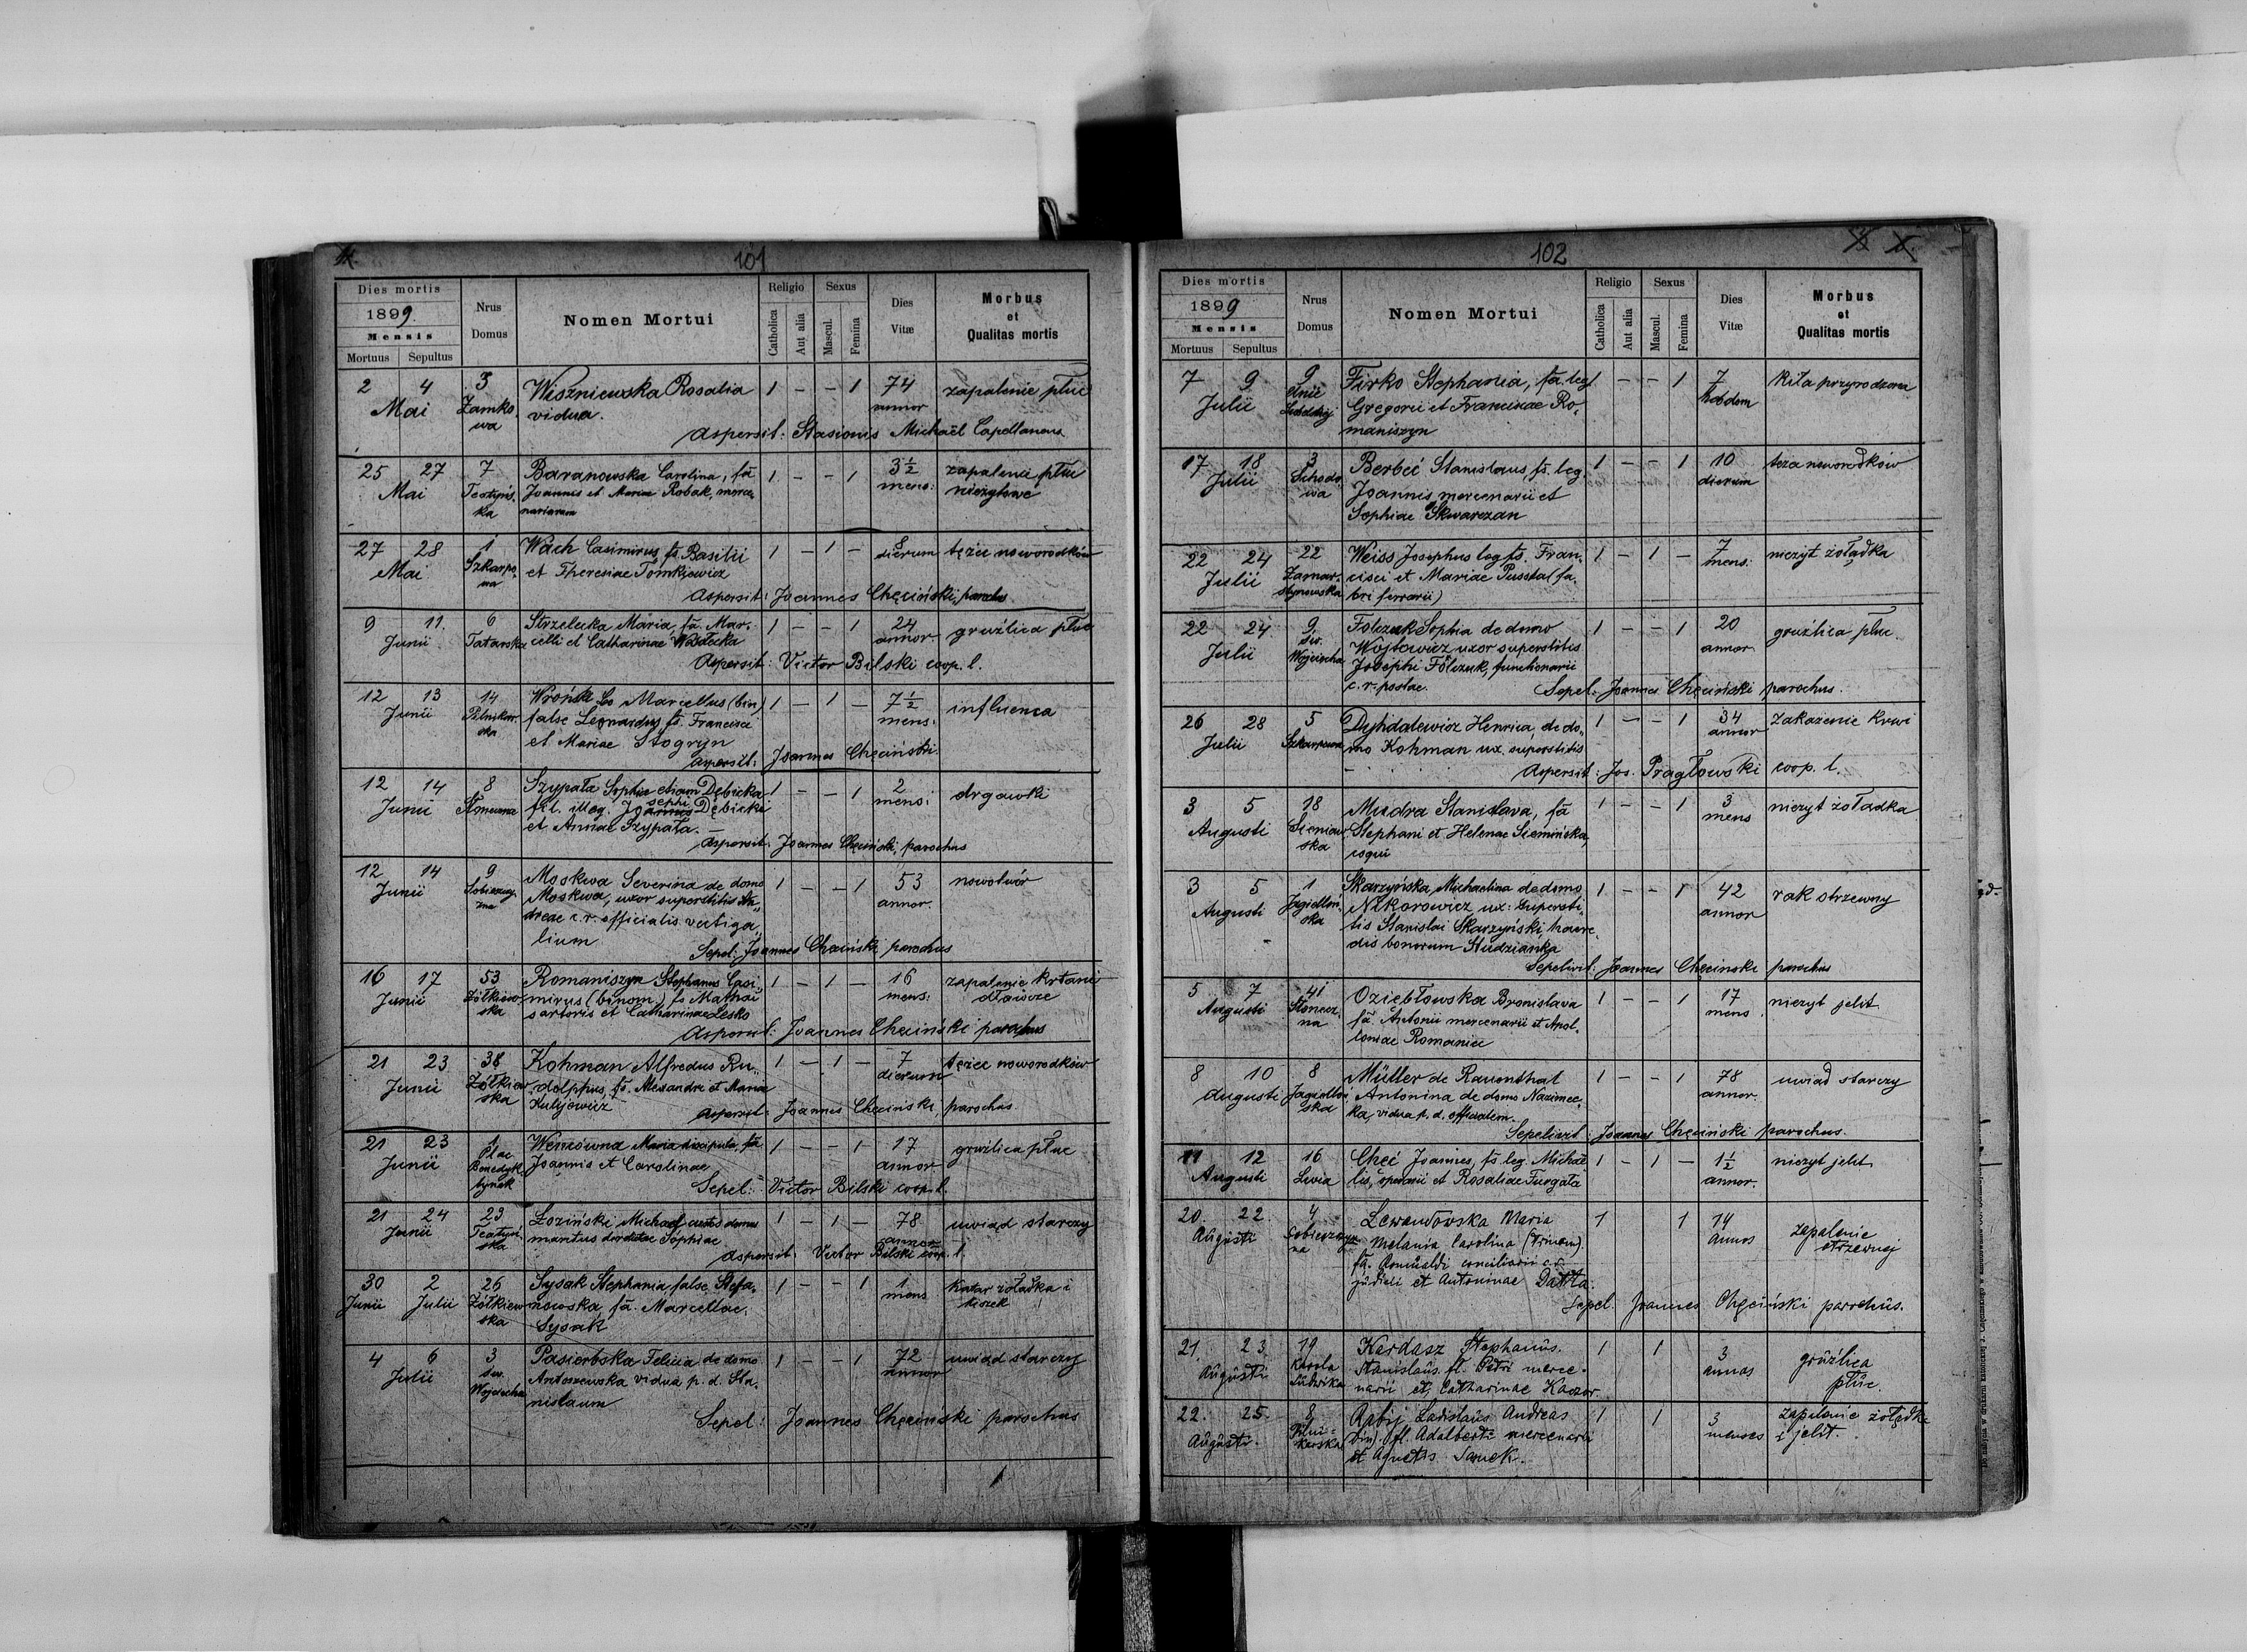 101
Dies mortis
1899.
Mensis
Mortuus Sepultus
Nrus Domus
Nomen Mortui
Religio
Catholica
Aut alia
Sexus
Mascul.
Femina
Dies Vitæ
Morbus et Qualitas mortis
2 4 3 Wiszniewska Rosalia 1 – – 1 74 zapalenie płuc
Mai Zamko vidua. annor
wa
Aspersit: Stasionis Michaël Capellanus
25 27 7 Baranowska Carolina, fa 1 – – 1 3½ zapalenie płuc
Mai Teatyńs. Joannis et Mariae Robak, merce mens: nieżytowe
ka nariorum
27 28 1 Wach Casimirus fs. Basilii 1 – 1 – 8 tężec noworodków
Mai Szkarpo. et Theresiae Tomkiewicz dierum
wa
Aspersit: Joannes Chęciński, parochus
9 11. 6 Strzelecka Maria, fa. Mar. 1 – – 1 24 gruźlica płuc
Junii Tatarska celli et Catharinae annor
Aspersit: Victor Bilski coop. l.
12 13 14 Wroński Leo Marcellus (bin) 1 – 1 – 7½ influenca
Junii Pilnikar. false Leonardus fs. Francisci mens:
ska et Mariae Stogryn
Aspersit: Joannes Chęciński.
12 14 8 Szypała Sophia etiam Dębicka 1 – – 1 2 drgawki
Junii fil. illeg. Josephi Dębicki mens:
et Annae Szypała.
Aspersit: Joannes Chęciński, parochus
12 14 9 Moskwa Severina de domo 1 – – 1 53 nowotwór
Junii Sobieszczy. Moskwa, uxor superstitis An annor.
zna dreae c. r. officialis vectiga
lium
Sepel: Joannes Chęciński parochus
16 17 53 Romaniszyn Stephanus Casi 1 – 1 – 16 zapalenie krtani
Junii Żółkiew. mirus (binom) fs Mathai mens: dławcze
ska sartoris et Catharinae Lesko
Aspersit: Joannes Chęciński parochus
21 23 38 Kohman Alfredus Ru 1 – 1 – 7 tężec noworodków
Junii Żółkiew dolphus, fs. Alexandri et Maria dierum
ska Kulijewicz
Aspersit: Joannes Chęciński, parochus
21 23 1 Wenzówna Maria discipula, fa 1 – – 1 17 gruźlica płuc
Junii Plac Joannis et Carolinae annor
Benedyk
tynek
Sepel: Victor Bilski coop. l.
21 24 23 Łoziński Michael custos domus 1 – 1 – 78 uwiąd starczy
Junii Teatyń maritus Sophiae annor
ska
Aspersit: Victor Bilski coop. l.
30 2 26 Sysak Stephania, false Stefa. 1 – – 1 1 Katar żołądka i
Junii Julii Żółkiew nowska fa. Marcellae mens kiszek
ska Sysak
4 6 3 Pasierbska Felicia de domo 1 – – 1 72 uwiąd starczy
Julii św. Antoszewska vidua p. d. Sta. annor
Wojciecha nislaum
Sepel: Joannes Chęciński parochus
102
Dies mortis
1899
Mensis
Mortuus Sepultus
Nrus Domus
Nomen Mortui
Religio
Catholica
Aut alia
Sexus
Mascul.
Femina
Dies Vitæ
Morbus et Qualitas mortis
7 9 9 Firko Stephania, fa. leg. – – 1 7 kiła przyrodzona
Julii Unii Gregorii et Francisae Ro.
Lubelskiej maniszyn
17 18 3 Berbeć Stanislaus, fs. leg. 1 – – 1 10 noworodków
Julii Schodo Joannis, mercenarii et dierum
wa Sophiae Skwarczan
22 24 22 Weiss Josephus leg fs. Fran. 1 – 1 – 7 nieżyt żołądka
Julii Zamar. cisci et Mariae Pusstal fa. mens:
stynowska bri ferrarii)
22 24 9. Folczuk Sophia de domo 1 – – 1 20 gruźlica płuc.
Julii św. Wojtowicz uxor superstitis annor
Wojciecha Josephi Folczuk, functionarii
c. r. postae.
Sepel: Joannes Chęciński parochus.
26 28 5 Dyhdalewicz Henrica, de do. 1 – – 1 34 zakażenie krwi
Julii Szkarpowa mo Kohman ux. superstitis annor
Aspersit: Jos. Pragłowski coop. l.
3 5 18 Mudra Stanislava, fa 1 – – 1 3 nieżyt żołądka
Augusti Sieniaw Stephani et Helenae Siemińska, mens
ska coqui
3 5 1 Skarzyńska Michaelina de domo 1 – – 1 42 rak otrzewny
Augusti Jagielloń Nikorowicz ux: supersti annor
ska tis Stanislai Skarzyński, haere.
dis bonorum Studzianka
Sepelivit: Joannes Chęciński parochus
5 7 41 Oziebłowska Bronislava 1 – – 1 17 nieżyt jelit
Augusti Słonecz. fa. Antonii mercenarii et Apol. mens.
na loniae Romanica
8 10 8 Müller de Rauenthal 1 – – 1 78 uwiąd starczy
Augusti Jagielloń Antonina de domo Nazimec. annor.
ska ka, vidua p. d. officialem.
Sepelivit: Joannes Chęciński parochus.
11 12 16 Chęć Joannes, fs. leg. Michae 1 – 1 – 1½ nieżyt jelit
Augusti Livia lis, operarii et Rosaliae Furgała annor.
20. 22. 4 Lewandowska Maria 1 1 14 zapalenie
Augusti Sobieszczyz Melania Carolina (trinom). annos otrzewnej
na fa. Romualdi consiliarii c. r.
judicii et Antoninae
Sepel. Joannes Chęciński parochus.
21. 23. 19 Kardasz Stephanus. 1 1 3 gruźlica
Augusti Karola Stanislaus. fl. Petri merce. annos płuc.
Ludwika narii et, Catharinae Kaczor.
22. 25. 8 Rabij Ladislaus Andreas 1 1 3 zapalenie żołądka
Augusti. Pilni= (bin). fl. Adalberti mercenarii menses i jelit.
karska et Agnetis Sanek.